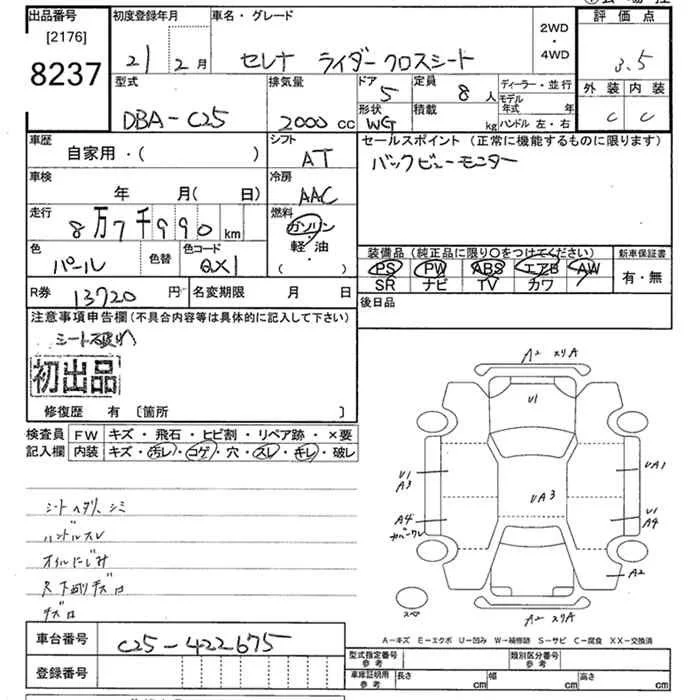 出品番号 初度登録年月 車名・グレード 2WD・4WD 評価点
[2176]
8237 21 2月 セレナ ライダークロスシート 3.5
型式 排気量 ドア 定員 ディーラー・並行 外装 内装
DBA-C25 2000cc 5 8人 モデル年式 年 C C
形状 積載
WG kg ハンドル 左・右
車歴 シフト セールスポイント(正常に機能するものに限ります)
自家用・( ) AT バックビューモニター
車検 冷房
年 月( 日) AAC
走行 燃料
8万7千990km ガソリン・軽・油
( )
色 色替 色コード 装備品(純正品に限り○をつけてください) 新車保証書
パール QX1 PS PW ABS エアB AW 有・無
SR ナビ TV カワ
R券 13720円 名変期限 月 日 後日品
注意事項申告欄(不具合内容等は具体的に記入して下さい)
シート破れ
初出品
修復歴 有 〔箇所 〕
検査員 FW キズ・飛石・ヒビ割・リペア跡・×要
記入欄 内装 キズ・汚レ・コゲ・穴・スレ・キレ・破レ
シートヘタリ、シミ
ハンドルスレ
オイルにじみ
A2 スリA
U1
U1 A3
UA1
UA3
A4
U1 A4
A2
スペ
A2 スリA
A−キズ E−エクボ U−凹み W−補修跡 S−サビ C−腐食 XX−交換済
車台番号 C25-422675
型式指定番号 参考 類別区分番号 参考
登録番号 車庫証明用 参考 長さ cm 幅 cm 高さ cm